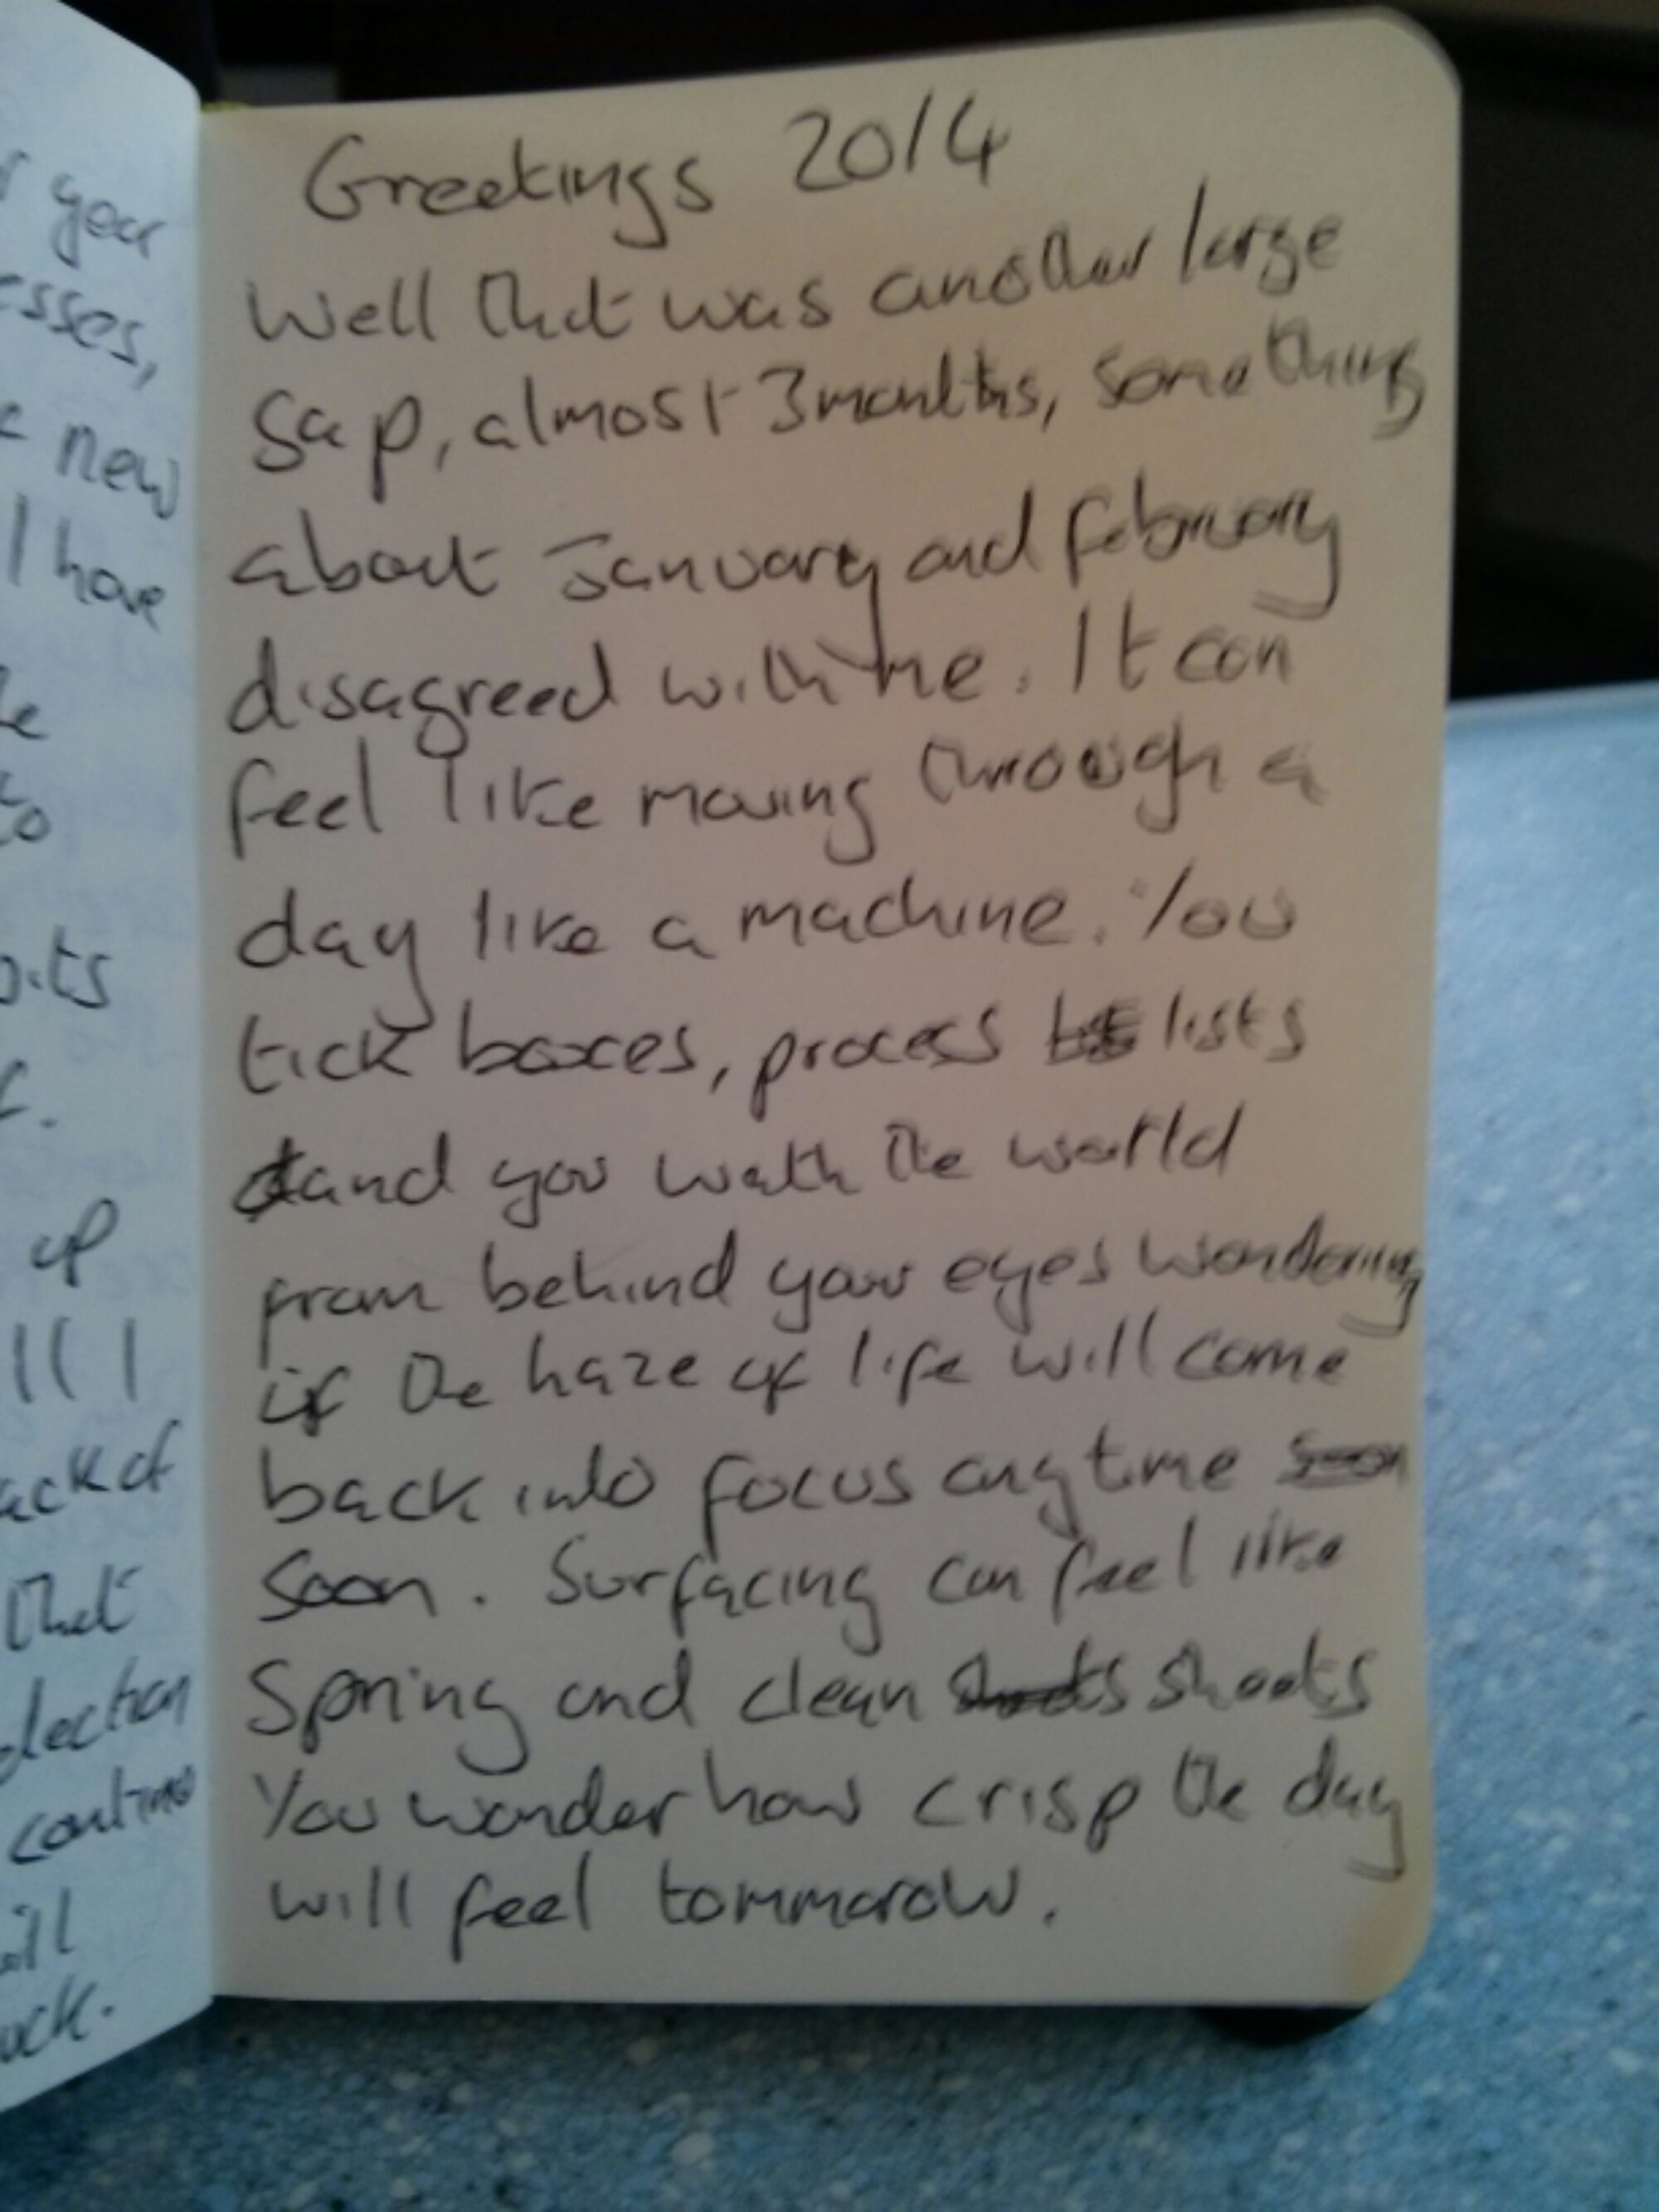 year
esses,
new
I have
to
up
ll I
ack of
that
continue
Greetings 2014
Well that was another large
gap, almost 3 months, something
about January and february
disagreed with me. It can
feel like moving through a
day like a machine. You
tick boxes, process lists
and you wath the world
from behind your eyes wondering
if the haze of life will come
back into focus anytime soon
soon. Surfacing can feel like
Spring and clean shoots shoots
You wonder how crisp the day
will feel tommorow.